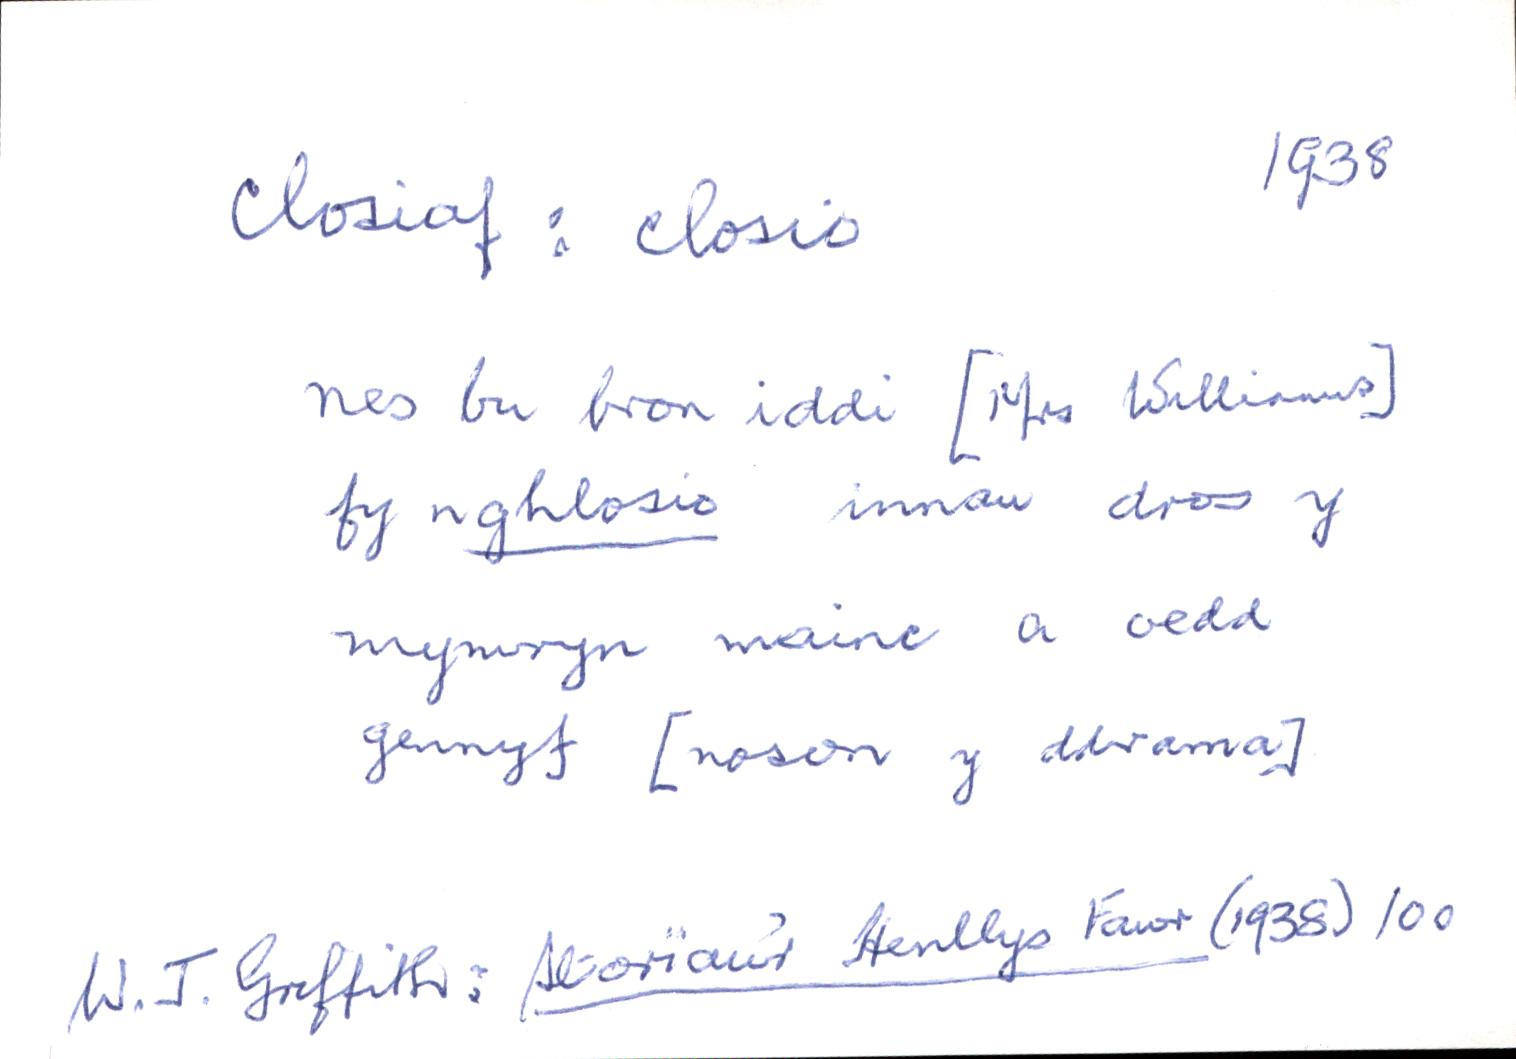 1938
Closiaf : closio
nes bu bron iddi [Mrs Williams]
fy nghlosio innau dros y
mymryn mainc a oedd
gennyf [noson y ddrama]
W. J. Gruffith : Storïau'r Henllys Fawr (1938) 100